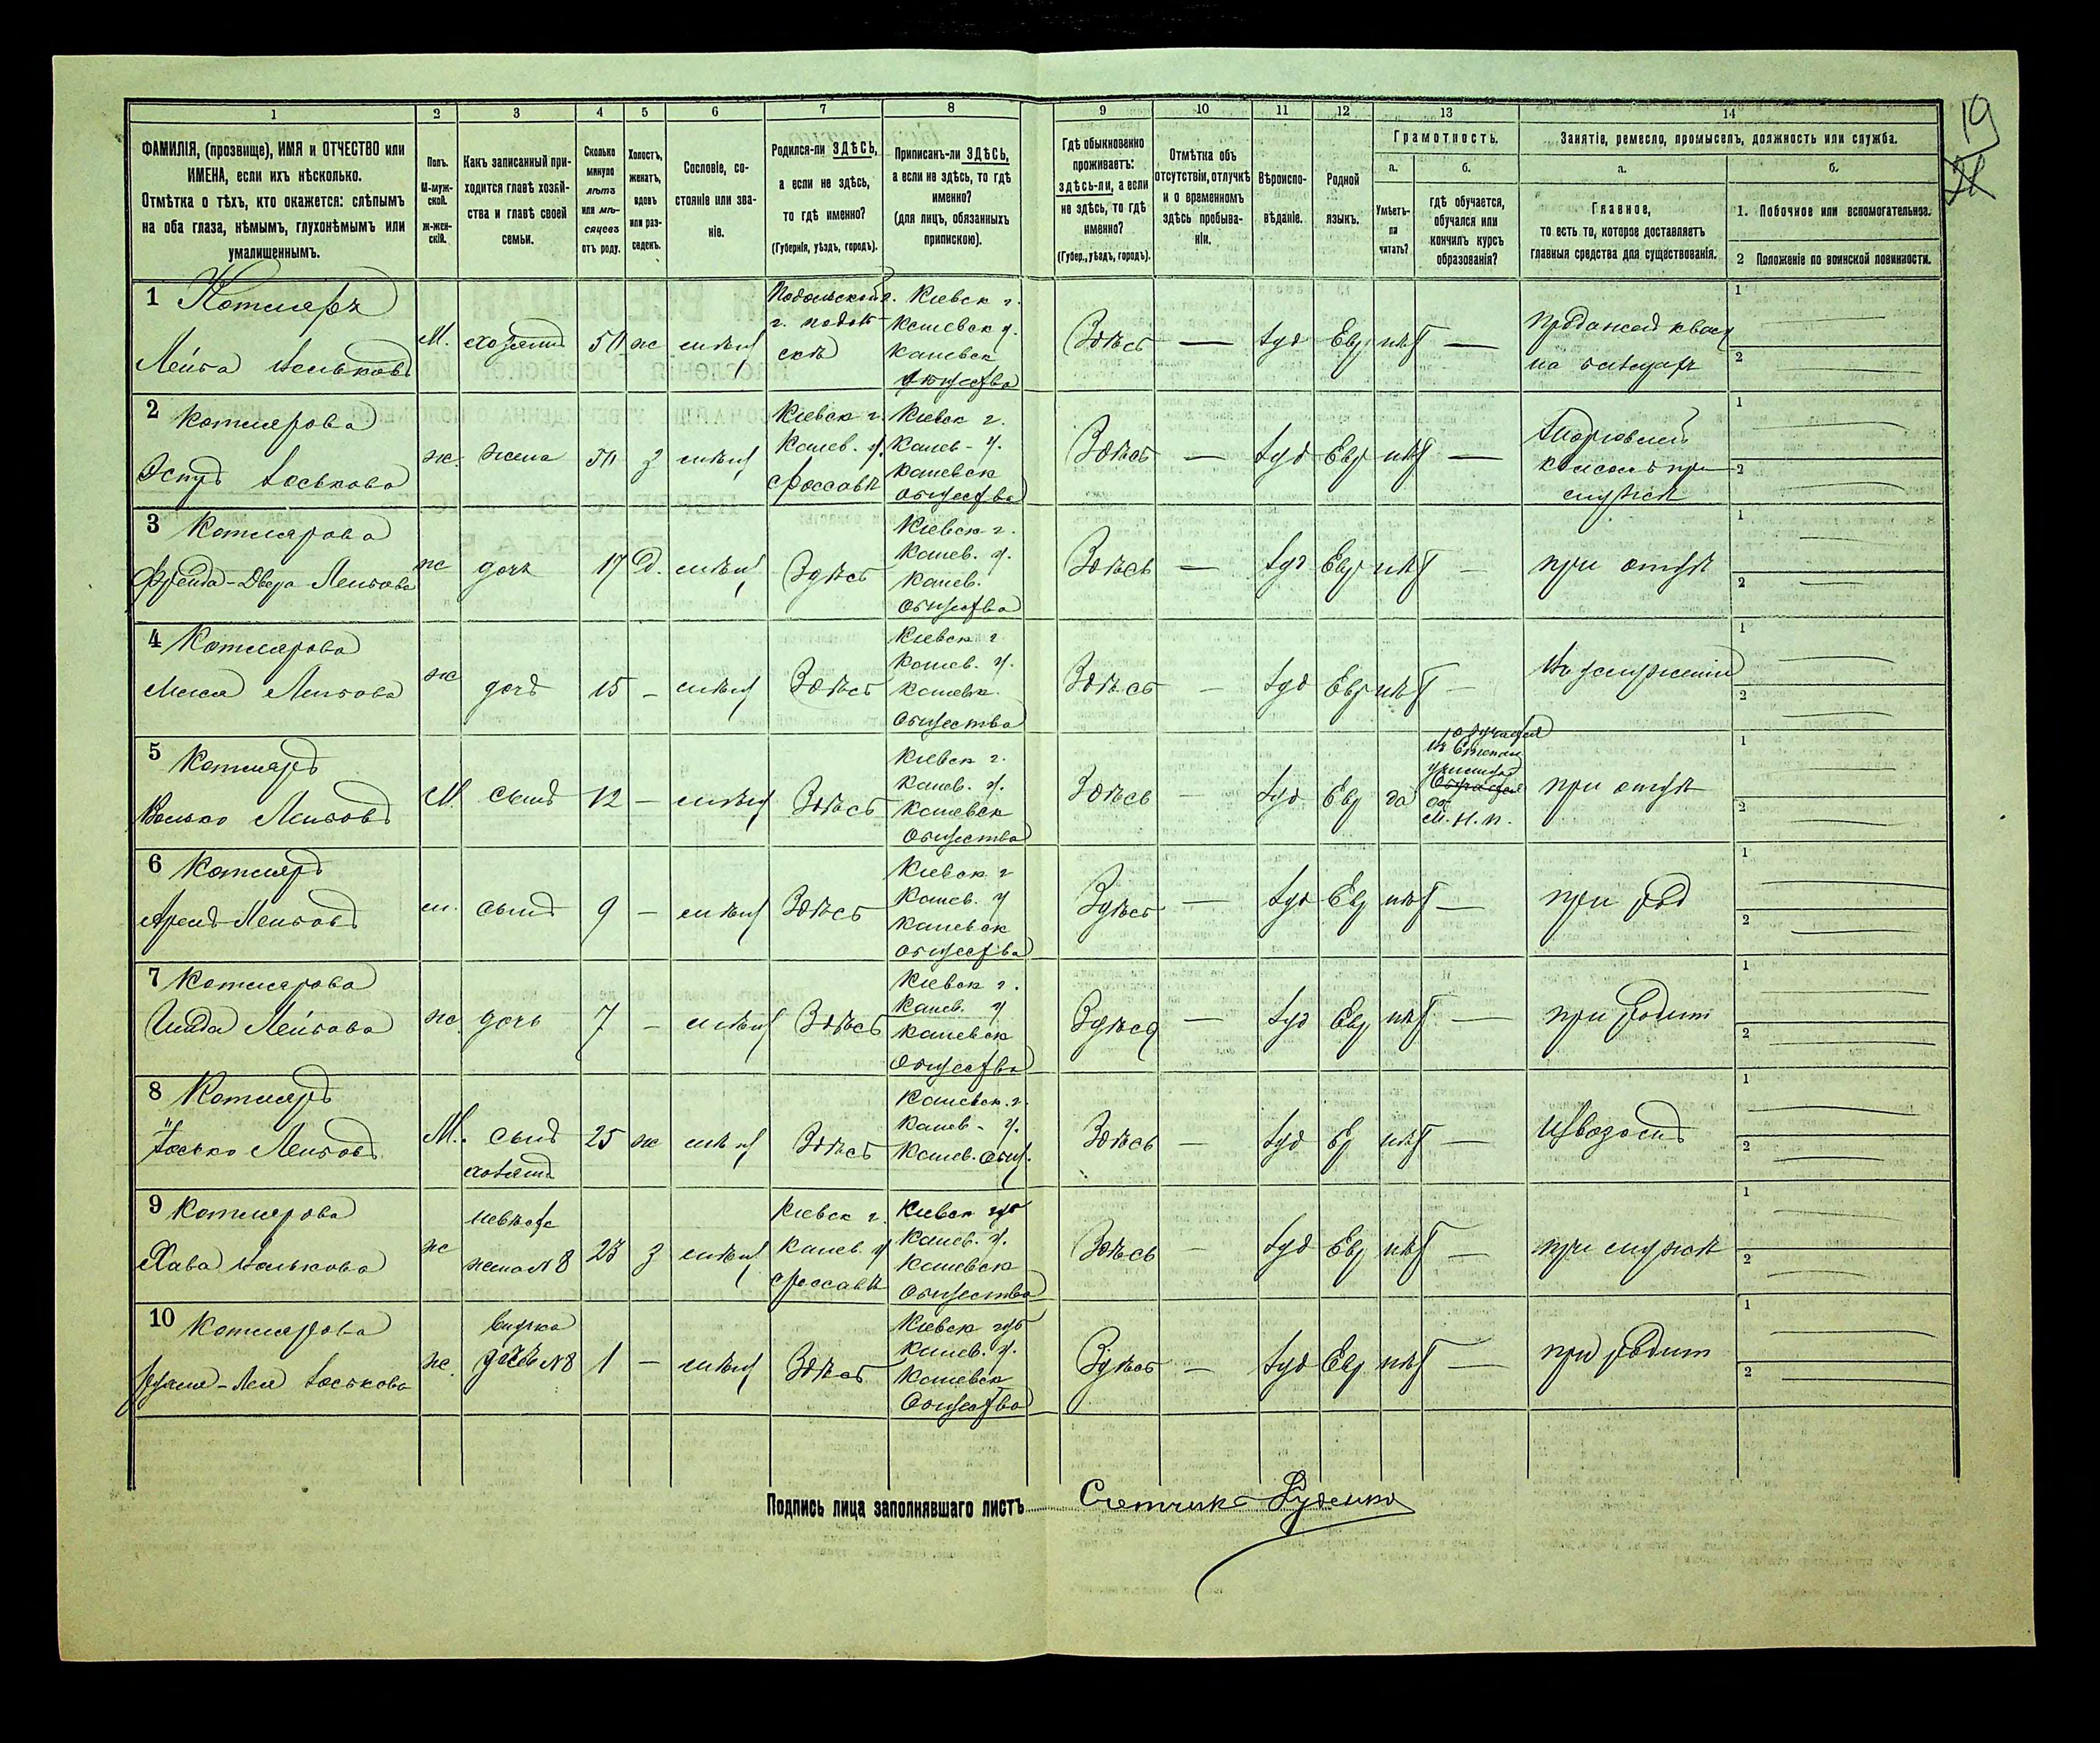 19
1 2 3 4 5 6 7 8 9 10 11 12 13 14
ФАМИЛІЯ, (прозвище), ИМЯ и ОТЧЕСТВО или
ИМЕНА, если ихъ нѣсколько.
Отмѣтка о тѣхъ, кто окажется: слѣпымъ
на оба глаза, нѣмымъ, глухонѣмымъ или
умалишеннымъ.
Полъ.
М-муж-
ской.
Ж-жен-
скій.
Какъ записанный при-
ходится главѣ хозяй-
ства и главѣ своей
семьи.
Сколько
минуло
лѣтъ
или мѣ-
сяцевъ
отъ роду.
Холостъ,
женатъ,
вдовъ
или раз-
веденъ.
Сословіе, со-
стояніе или зва-
ніе.
Родился-ли ЗДѢСЬ,
а если не здѣсь,
то гдѣ именно?
(Губернія, уѣздъ, городъ).
Приписанъ-ли ЗДѢСЬ,
а если не здѣсь, то гдѣ
именно?
(для лицъ, обязанныхъ
припискою).
Гдѣ обыкновенно
проживаетъ:
здѣсь-ли, а если
не здѣсь, то гдѣ
именно?
(Губер., уѣздъ, городъ).
Отмѣтка объ
отсутствіи, отлучкѣ
и о временномъ
здѣсь пребыва-
ніи.
Вѣроиспо-
вѣданіе.
Родной
языкъ.
Грамотность.
а.
Умѣетъ-
ли
читать?
б.
гдѣ обучается,
обучался или
кончилъ курсъ
образованія?
Занятіе, ремесло, промыселъ, должность или служба.
а.
Главное,
то есть то, которое доставляетъ
главныя средства для существованія.
б.
1. Побочное или вспомогательное.
2 Положеніе по воинской повинности.
1 Котляръ
Лейба
М. хозяинъ ж мѣщ
Кіевск г.
Каневск у.
Каневск
Общества
Здѣсь — Іуд Евр нѣт —
1
2
2 Котлярова
Іоськова
ж. жена з мѣщ
Кіевск г.
Канев. у.
Кіевск г.
Канев. у.
Каневск
Общества
Здѣсь — Іуд Евр нѣт —
1
2
3 Котлярова
Фрейда-Двера Лейбова
ж дочь 17 Д. мѣщ Здѣсь
Кіевск г.
Канев. у.
Канев.
Общества
Здѣсь — Іуд Евр нѣт —
при отцѣ
1
2
4 Котлярова
Лейбова
ж дочь 15 — мѣщ Здѣсь
Кіевск г
Канев. у.
Каневск
Общества
Здѣсь — Іуд Евр нѣт —
1
2
5 Котляръ
Волько Лейбовъ
М. сынъ 12 — мѣщ Здѣсь
Кіевск г.
Канев. у.
Каневск
Общества
Здѣсь — Іуд Евр да
М. Н. П.
при отцѣ
1
2
6 Котляръ
Лейбовъ
м. сынъ 9 — мѣщ Здѣсь
Кіевск г
Канев. у
Каневск
Общества
Здѣсь — Іуд Евр нѣт —
при род
1
2
7 Котлярова
Лейбова
ж. дочь 7 — мѣщ Здѣсь
Кіевск г.
Канев. у
Каневск
Общества
Здѣсь — Іуд Евр нѣт —
при родит
1
2
8 Котляръ
Іосько Лейбовъ
М. сынъ
хозяина
25 ж мѣщ Здѣсь
Каневск. г.
Канев. у.
Канев. Общ.
Здѣсь — Іуд Ев нѣт —
Извозом
1
2
9 Котлярова
Хава
ж
невѣст
жена N 8
23 з мѣщ
Кіевск г.
Канев у
Кіевск губ
Канев. у.
Каневск
Общества
Здѣсь — Іуд Евр нѣт —
при мужѣ
1
2
10 Котлярова
Іоськова
ж.
Внучка
дочь N 8
1 — мѣщ Здѣсь
Кіевск губ
Канев. у.
Каневск
Общества
Здѣсь — Іуд Евр. нѣт —
при родит
1
2
Подпись лица заполнявшаго листъ Счетчикъ Руденко